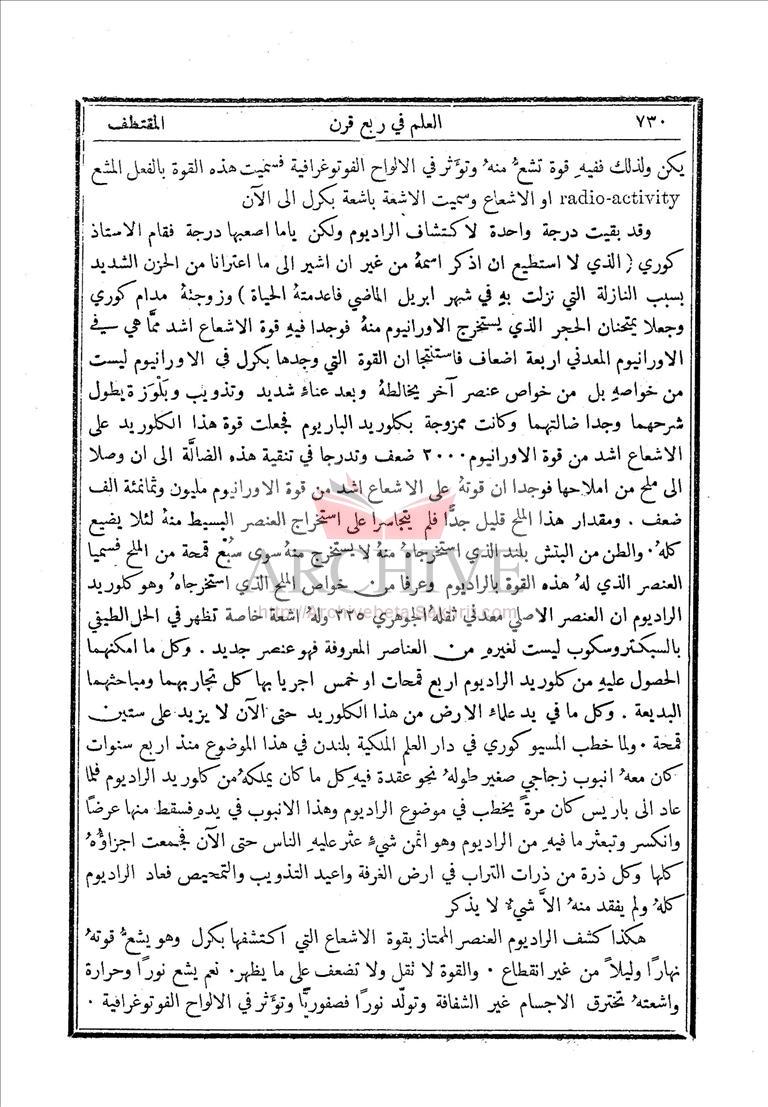 ٧٣٠ العلم في ربع قرن المقتطف
يكن ولذلك ففيهِ قوة تشعُّ منهُ وتؤَثر في الالواح الفوتوغرافية فسميت هذه القوة بالفعل المشع
radio-activity او الاشعاع وسميت الاشعة باشعة بكرل الى الآن
وقد بقيت درجة واحدة لاكتشاف الراديوم ولكن ياما اصعبها درجة فقام الاستاذ
كوري ( الذي لا استطيع ان اذكر اسمهُ من غير ان اشير الى ما اعترانا من الحزن الشديد
بسبب النازلة التي نزلت بهِ في شهر ابريل الماضي فاعدمتهُ الحياة ) وزوجتهُ مدام كوري
وجعلا يمتحنان الحجر الذي يستخرج الاورانيوم منهُ فوجدا فيهِ قوة الاشعاع اشد ممَّا هي في
الاورانيوم المعدني اربعة اضعاف فاستنتجا ان القوة التي وجدها بكرل في الاورانيوم ليست
من خواصهِ بل من خواص عنصر آخر يخالطهُ وبعد عناءٍ شديد وتذويب وبَلْوَرَة يطول
شرحهما وجدا ضالتهما وكانت ممزوجة بكلوريد الباريوم فجعلت قوة هذا الكلوريد على
الاشعاع اشد من قوة الاورانيوم ٣٠٠٠ ضعف وتدرجا في تنقية هذه الضالَّة الى ان وصلا
الى ملح من املاحها فوجدا ان قوتهُ على الاشعاع اشد من قوة الاورانيوم مليون وثمانمئة الف
ضعف . ومقدار هذا الملح قليل جدًّا فلم يتجاسرا على استخراج العنصر البسيط منهُ لئلا يضيع
كلهُ . والطن من البتش بلند الذي استخرجاهُ منهُ لا يستخرج منهُ سوى سُبع قمحة من الملح فسميا
العنصر الذي لهُ هذه القوة بالراديوم وعرفا من خواص الملح الذي استخرجاهُ وهو كلوريد
الراديوم ان العنصر الاصلي معدني ثقلهُ الجوهري ٢٢٥ ولهُ اشعة خاصة تظهر في الحل الطيفي
بالسبكتروسكوب ليست لغيرهِ من العناصر المعروفة فهو عنصر جديد . وكل ما امكنهما
الحصول عليهِ من كلوريد الراديوم اربع قمحات او خمس اجريا بها كل تجاربهما ومباحثهما
البديعة . وكل ما في يد علماء الارض من هذا الكلوريد حتى الآن لا يزيد على ستين
قمحة . ولما خطب المسيو كوري في دار العلم الملكية بلندن في هذا الموضوع منذ اربع سنوات
كان معهُ انبوب زجاجي صغير طولهُ نحو عقدة فيهِ كل ما كان يملكهُ من كلوريد الراديوم فلما
عاد الى باريس كان مرةً يخطب في موضوع الراديوم وهذا الانبوب في يده فسقط منها عرضًا
وانكسر وتبعثر ما فيهِ من الراديوم وهو اثمن شيءٍ عثر عليهِ الناس حتى الآن فجُمعت اجزاؤُهُ
كلها وكل ذرة من ذرات التراب في ارض الغرفة واعيد التذويب والتمحيص فعاد الراديوم
كلهُ ولم يفقد منهُ الاَّ شيءٌ لا يذكر
هكذا كشف الراديوم العنصر الممتاز بقوة الاشعاع التي اكتشفها بكرل وهو يشعُّ قوتهُ
نهارًا وليلاً من غير انقطاع . والقوة لا تقل ولا تضعف على ما يظهر . نعم يشع نورًا وحرارة
واشعتهُ تخترق الاجسام غير الشفافة وتولّد نورًا فصفوريًّا وتؤَثر في الالواح الفوتوغرافية .
ARCHIVE
http://Archivebeta.Sakhrit.com